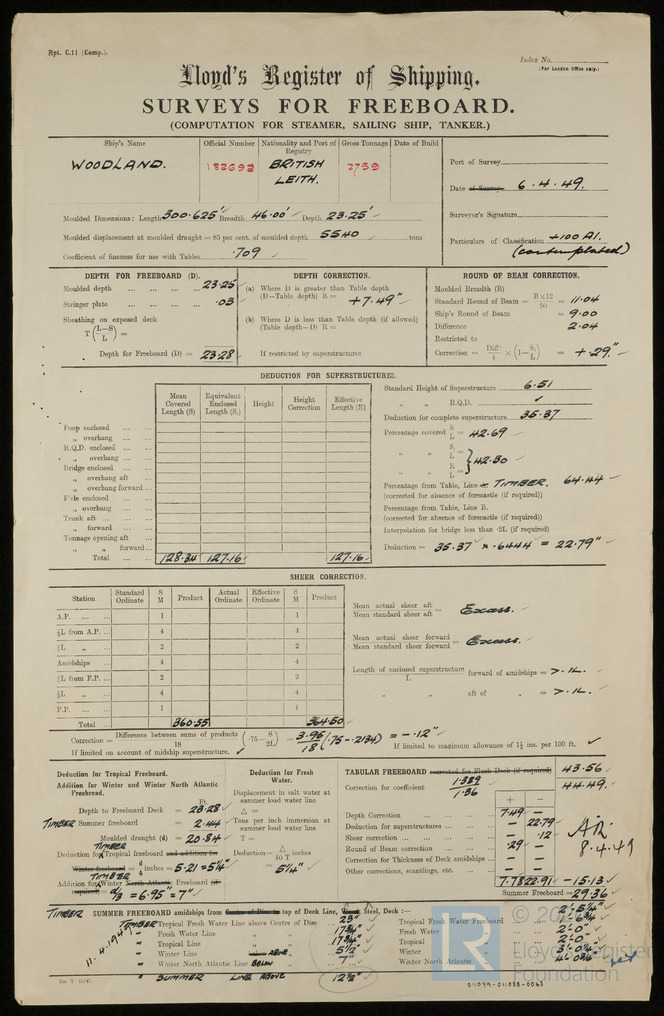 Rpt. C.11 (Comp.).
Index No.
(For London Office only.)
Lloyd's Register of Shipping.
SURVEYS FOR FREEBOARD.
(COMPUTATION FOR STEAMER, SAILING SHIP, TANKER.)
Ship's Name
Official Number
Nationality and Port of Registry
Gross Tonnage
Date of Build
WOODLAND.
BRITISH LEITH.
2759
Port of Survey
Date of Survey 6.4.49.
Surveyor's Signature
Particulars of Classification +100 A1. (contemplated)
Moulded Dimensions: Length 300.625' Breadth 46.00' Depth 23.25'
Moulded displacement at moulded draught = 85 per cent. of moulded depth 5540 tons
Coefficient of fineness for use with Tables .709
DEPTH FOR FREEBOARD (D).
Moulded depth ... 23.25
Stringer plate ... .03
Sheathing on exposed deck
T (L-S/L) =
Depth for Freeboard (D) = 23.28
DEPTH CORRECTION.
(a) Where D is greater than Table depth
(D-Table depth) R = +7.49"
(b) Where D is less than Table depth (if allowed)
(Table depth-D) R =
If restricted by superstructures
ROUND OF BEAM CORRECTION.
Moulded Breadth (B)
Standard Round of Beam = B×12/50 = 11.04
Ship's Round of Beam = 9.00
Difference 2.04
Restricted to
Correction = Diff/4 × (1-S₁/L) = +.29"
DEDUCTION FOR SUPERSTRUCTURES.
Mean Covered Length (S)
Equivalent Enclosed Length (S₁)
Height
Height Correction
Effective Length (E)
Poop enclosed
„ overhang
R.Q.D. enclosed
„ overhang
Bridge enclosed
„ overhang aft
„ overhang forward
F'cle enclosed
„ overhang
Trunk aft
„ forward
Tonnage opening aft
„ „ forward
Total 128.34 127.16 127.16
Standard Height of Superstructure 6.51
„ „ R.Q.D. ✓
Deduction for complete superstructure 35.37
Percentage covered S/L = 42.69
„ „ S₁/L
„ „ E/L } 42.30
Percentage from Table, Line TIMBER. 64.44
(corrected for absence of forecastle (if required))
Percentage from Table, Line B.
(corrected for absence of forecastle (if required))
Interpolation for bridge less than .2L (if required)
Deduction = 35.37 × .6444 = 22.79"
SHEER CORRECTION.
Station
Standard Ordinate
S M
Product
Actual Ordinate
Effective Ordinate
S M
Product
A.P. 1 1
⅙L from A.P. 4 4
⅓L „ 2 2
Amidships 4 4
⅓L from F.P. 2 2
⅙L „ 4 4
F.P. 1 1
Total 360.55 364.50
Mean actual sheer aft / Mean standard sheer aft = Excess.
Mean actual sheer forward / Mean standard sheer forward = Excess.
Length of enclosed superstructure / L forward of amidships = >.1L.
„ „ aft of „ = >.1L.
Correction = Difference between sums of products / 18 (.75-S/2L) = 3.95/18 (.75-.2134) = -.12"
If limited on account of midship superstructure.
If limited to maximum allowance of 1½ ins. per 100 ft.
Deduction for Tropical Freeboard.
Addition for Winter and Winter North Atlantic Freeboard.
Ft.
Depth to Freeboard Deck = 23.28
TIMBER Summer freeboard = 2.44
Moulded draught (d) = 20.84
TIMBER
Deduction for Tropical freeboard and addition for
Winter freeboard = d/4 inches = 5.21 = 5¼"
TIMBER
Addition for Winter North Atlantic Freeboard (if
required) = d/3 = 6.95" = 7"
Deduction for Fresh Water.
Displacement in salt water at summer load water line
Δ =
Tons per inch immersion at summer load water line
T =
Deduction = Δ/40 T inches
= 5¼"
TABULAR FREEBOARD corrected for Flush Deck (if required) 43.56
Correction for coefficient 1.389/1.36 44.49
+ -
Depth Correction 7.49 -
Deduction for superstructures - 22.79
Sheer correction - .12
Round of Beam correction .29 -
Correction for Thickness of Deck amidships - -
Other corrections, scantlings, etc. - -
7.78 22.91 -15.13
Summer Freeboard = 29.36
8.4.49
TIMBER SUMMER FREEBOARD amidships from Centre of Disc to top of Deck Line, Wood Steel, Deck :— 2'-5¼"
TIMBER Tropical Fresh Water Line above Centre of Disc 23"
„ Fresh Water Line „ „ 17¾"
„ Tropical Line „ „ 17¾"
„ Winter Line below ABOVE „ 5½"
„ Winter North Atlantic Line BELOW „ 7"
„ SUMMER LINE ABOVE „ 12½"
11.4.1949
Tropical Fresh Water Freeboard 1'-6¾"
Fresh Water „ 2'-0"
Tropical „ 2'-0"
Winter „ 3'-0¼"
Winter North Atlantic „
© 20
Lloyd's Register Foundation
011079-011088-0063